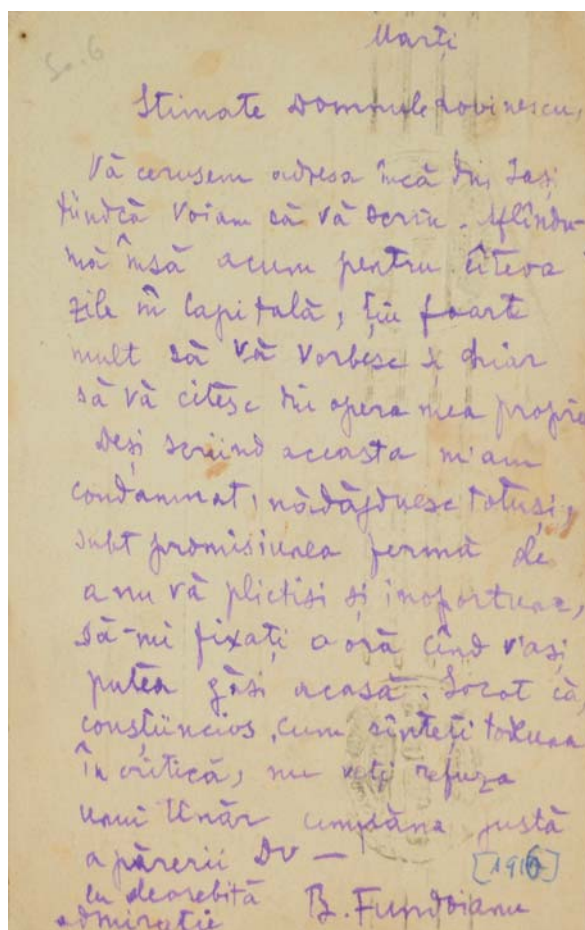 50.6
Marți
Stimate Domnule Lovinescu,
Vă cerusem adresa încă din Iași
fiindcă voiam să vă scriu. Aflîndu-
mă însă acum pentru cîteva
zile în Capitală, țiu foarte
mult să vă vorbesc și chiar
să vă citesc din opera mea proprie
Deși scriind aceasta m'am
condamnat, nădăjduesc totuși,
subt promisiunea fermă de
a nu vă plictisi și inoportuna,
să-mi fixați o oră cînd v'ași
putea găsi acasă. Socot că,
conștiincios, cum sînteți
în critică, nu veți refuza
unui tînăr cumpăna justă
a părerii Dv —
cu deosebită
admirație
B. Fundoianu
[1916]